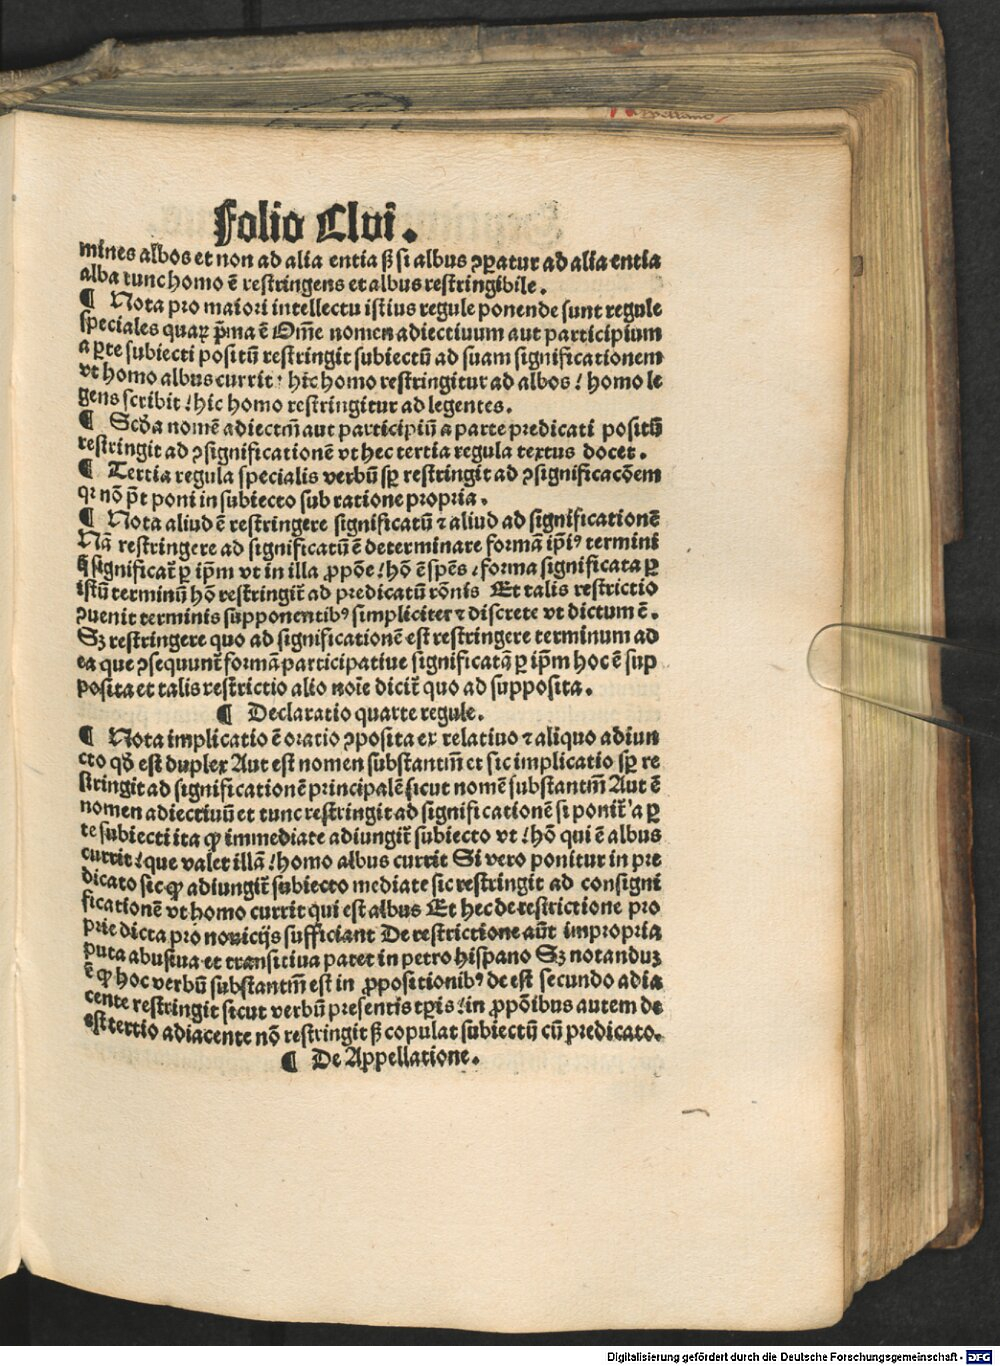 Folio Clvi.
mines albos et non ad alia entia ſꝫ ſi albus ꝯꝑatur ad alia entia
alba tunc homo ē reſtringens et albus reſtringibile.
¶ Nota pro maiori intellectu iſtius regule ponende ſunt regule
ſpeciales quaꝝ pͥma ē Om̄e nomen adiectiuum aut participium
a ꝑte ſubiecti poſitū reſtringit ſubiectū ad ſuam ſignificationem
vt homo albus currit: hic homo reſtringitur ad albos / homo le
gens ſcribit / hic homo reſtringitur ad legentes.
¶ Scd̄a nomē adiectm̄ aut participiū a parte predicati poſitū
reſtringit ad ꝯſignificationē vt hec tertia regula textus docet.
¶ Tertia regula ſpecialis verbū ſꝑ reſtringit ad ꝯſignificacōem
qꝛ nō pōt poni in ſubiecto ſub ratione propria.
¶ Nota aliud ē reſtringere ſignificatū ⁊ aliud ad ſignificationē
Nā reſtringere ad ſignificatū ē determinare formā ip̄iꝰ termini
q̄ ſignificat̄ ꝑ ip̄m vt in illa ꝓpōe / hō ē ſpēs / forma ſignificata ꝑ
iſtū terminū hō reſtringit̄ ad predicatū rōnis Et talis reſtrictio
ꝯuenit terminis ſupponentibꝰ ſimpliciter ⁊ diſcrete vt dictum ē.
Sꝫ reſtringere quo ad ſignificationē eſt reſtringere terminum ad
ea que ꝯſequunt̄ formā participatiue ſignificatā ꝑ ip̄m hoc ē ſup
poſita et talis reſtrictio alio noīe dicit̄ quo ad ſuppoſita.
¶ Declaratio quarte regule.
¶ Nota implicatio ē oratio ꝯpoſita ex relatiuo ⁊ aliquo adiun
cto qd̄ eſt duplex Aut eſt nomen ſubſtantm̄ et ſic implicatio ſꝑ re
ſtringit ad ſignificationē principalē ſicut nomē ſubſtantm̄ Aut ē
nomen adiectiuū et tunc reſtringit ad ſignificationē ſi ponit̄ a ꝑ
te ſubiecti ita ꝙ immediate adiungit̄ ſubiecto vt / hō qui ē albus
currit / que valet illā / homo albus currit Si vero ponitur in pre
dicato ſic ꝙ adiungit̄ ſubiecto mediate ſic reſtringit ad conſigni
ficationē vt homo currit qui eſt albus Et hec de reſtrictione pro
prie dicta pro nouicijs ſufficiant De reſtrictione aūt impropria
puta abuſiua et tranſitiua patet in petro hiſpano Sꝫ notanduꝫ
ē ꝙ hoc verbū ſubſtantm̄ eſt in ꝓpoſitionibꝰ de eſt ſecundo adia
cente reſtringit ſicut verbū preſentis tꝑis / in ꝓpōibus autem de
eſt tertio adiacente nō reſtringit ſꝫ copulat ſubiectū cū predicato.
¶ De Appellatione.
Digitalisierung gefördert durch die Deutsche Forschungsgemeinschaft - DFG